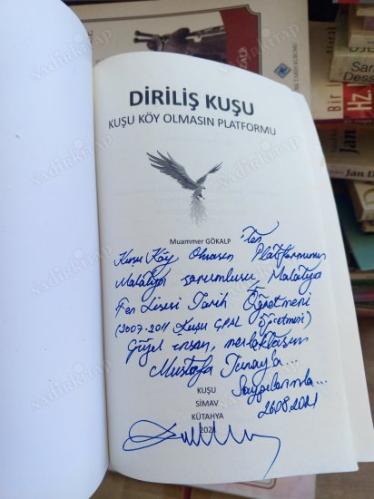 DİRİLİŞ KUŞU
KUŞU KÖY OLMASIN PLATFORMU
Muammer GÖKALP
Kuşu Köy Olmasın Platformunun
Malatya sorumlusu, Malatya
Fen Lisesi Tarih Öğretmeni
(2007-2011 Kuşu ÇPAL Öğretmeni)
Güzel insan, meslektaşım
Mustafa Tunay'a...
Saygılarımla...
26.08.2021
KUŞU
SİMAV
KÜTAHYA
2021
Bir
HZ.
Jan
Jan D
San
Dess
NadirKitap